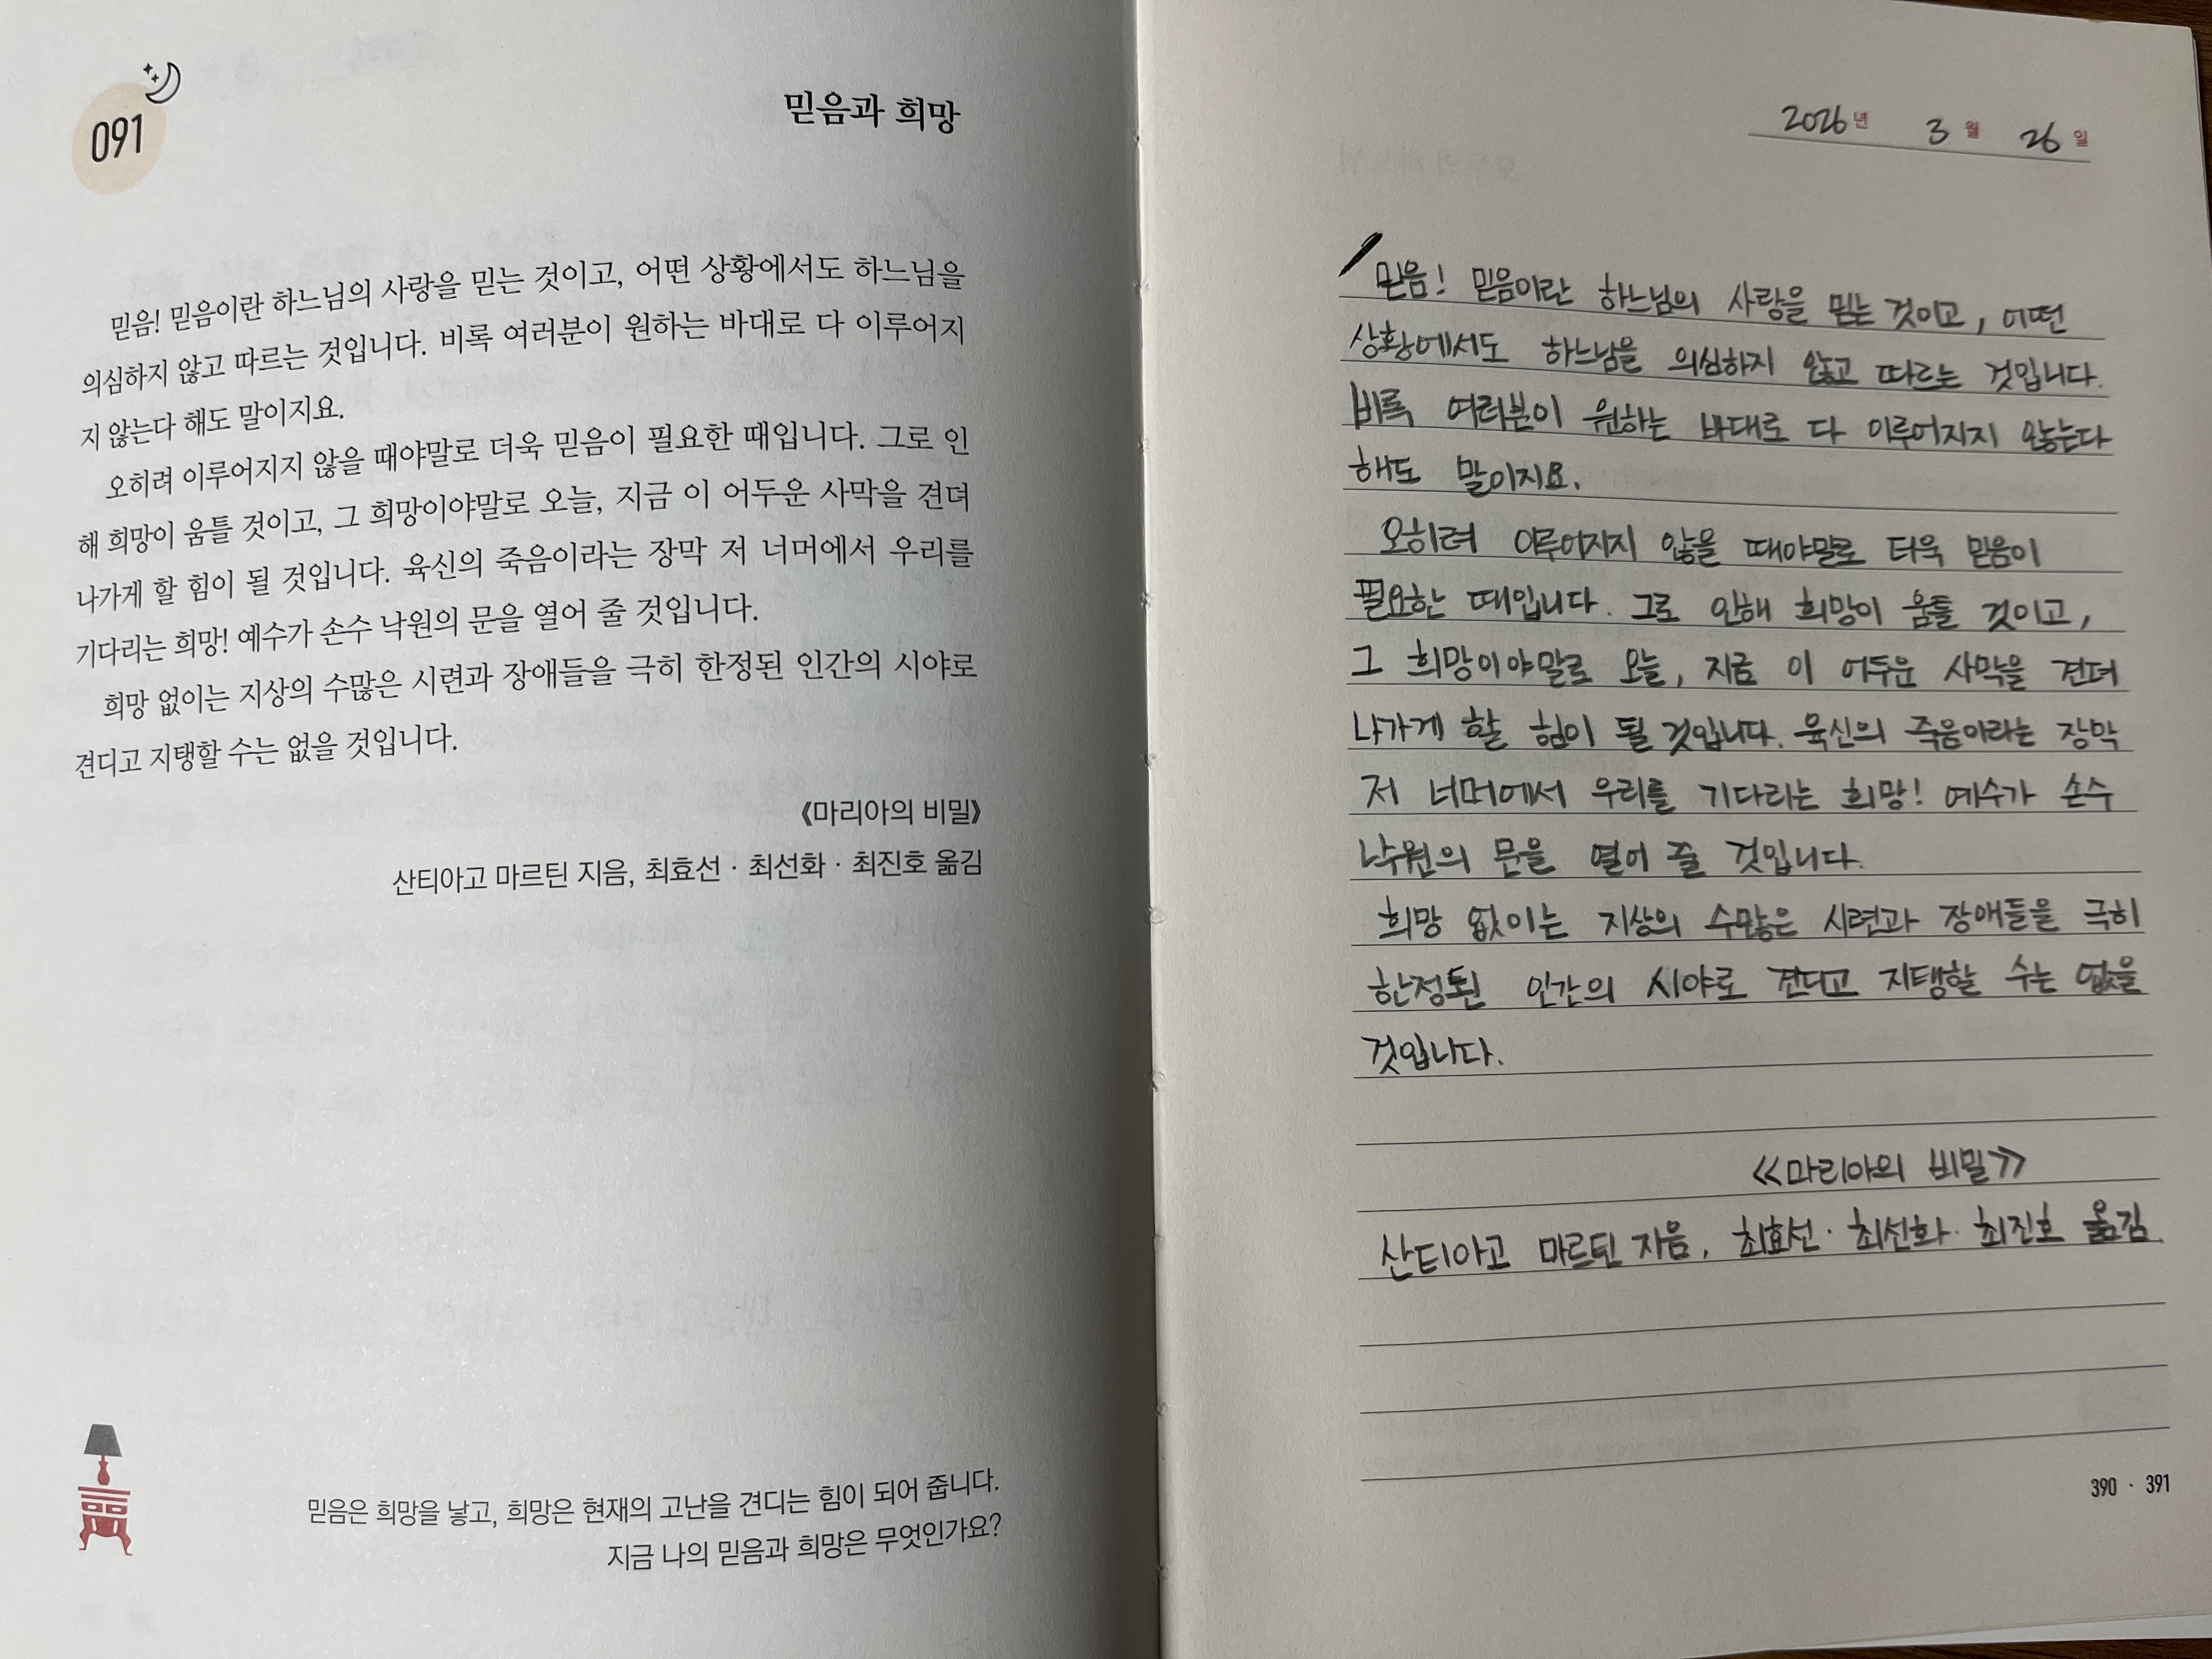 091
믿음과 희망
믿음! 믿음이란 하느님의 사랑을 믿는 것이고, 어떤 상황에서도 하느님을
의심하지 않고 따르는 것입니다. 비록 여러분이 원하는 바대로 다 이루어지
지 않는다 해도 말이지요.
오히려 이루어지지 않을 때야말로 더욱 믿음이 필요한 때입니다. 그로 인
해 희망이 움틀 것이고, 그 희망이야말로 오늘, 지금 이 어두운 사막을 견뎌
나가게 할 힘이 될 것입니다. 육신의 죽음이라는 장막 저 너머에서 우리를
기다리는 희망! 예수가 손수 낙원의 문을 열어 줄 것입니다.
희망 없이는 지상의 수많은 시련과 장애들을 극히 한정된 인간의 시야로
견디고 지탱할 수는 없을 것입니다.
《마리아의 비밀》
산티아고 마르틴 지음, 최효선 · 최선화 · 최진호 옮김
믿음은 희망을 낳고, 희망은 현재의 고난을 견디는 힘이 되어 줍니다.
지금 나의 믿음과 희망은 무엇인가요?
2026년 3월 26일
믿음! 믿음이란 하느님의 사랑을 믿는 것이고, 어떤
상황에서도 하느님을 의심하지 않고 따르는 것입니다.
비록 여러분이 원하는 바대로 다 이루어지지 않는다
해도 말이지요.
오히려 이루어지지 않을 때야말로 더욱 믿음이
필요한 때입니다. 그로 인해 희망이 움틀 것이고,
그 희망이야말로 오늘, 지금 이 어두운 사막을 견뎌
나가게 할 힘이 될 것입니다. 육신의 죽음이라는 장막
저 너머에서 우리를 기다리는 희망! 예수가 손수
낙원의 문을 열어 줄 것입니다.
희망 없이는 지상의 수많은 시련과 장애들을 극히
한정된 인간의 시야로 견디고 지탱할 수는 없을
것입니다.
《마리아의 비밀》
산티아고 마르틴 지음, 최효선 · 최선화 · 최진호 옮김.
390 · 391